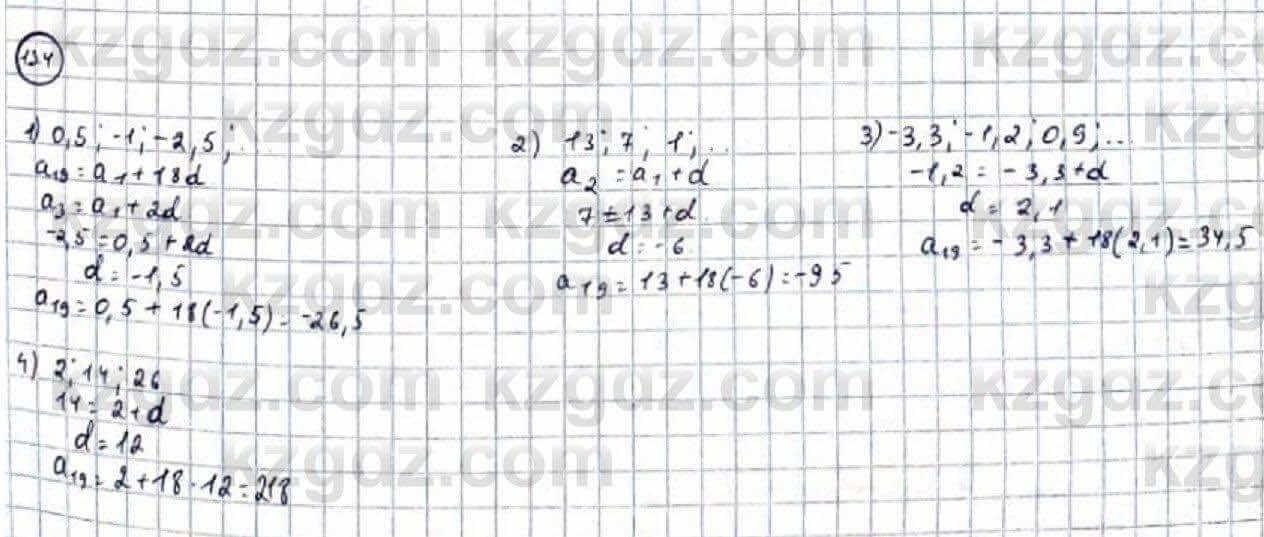 194
1) 0,5; -1; -2,5; ...
a₁₉ = a₁ + 18d
a₃ = a₁ + 2d
-2,5 = 0,5 + 2d
d = -1,5
a₁₉ = 0,5 + 18(-1,5) = -26,5
2) 13; 7; 1; ...
a₂ = a₁ + d
7 = 13 + d
d = -6
a₁₉ = 13 + 18(-6) = -95
3) -3,3; -1,2; 0,9; ...
-1,2 = -3,3 + d
d = 2,1
a₁₉ = -3,3 + 18(2,1) = 34,5
4) 2; 14; 26
14 = 2 + d
d = 12
a₁₉ = 2 + 18 · 12 = 218
kzgdz.com